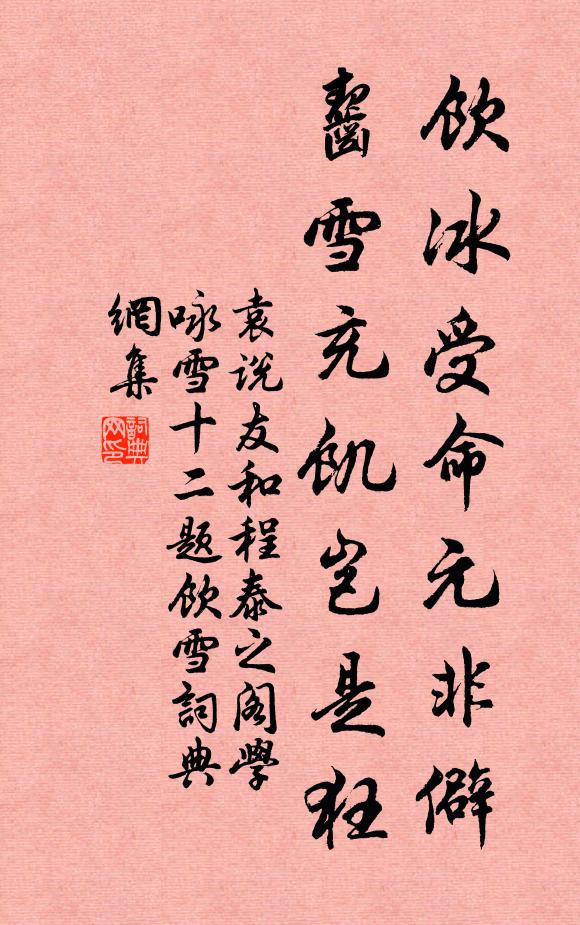 飲冰受命元非僻
齧雪充飢豈是狂
袁説友和程泰之閣學
咏雪十二題飲雪詞典
網集
詞典
网印